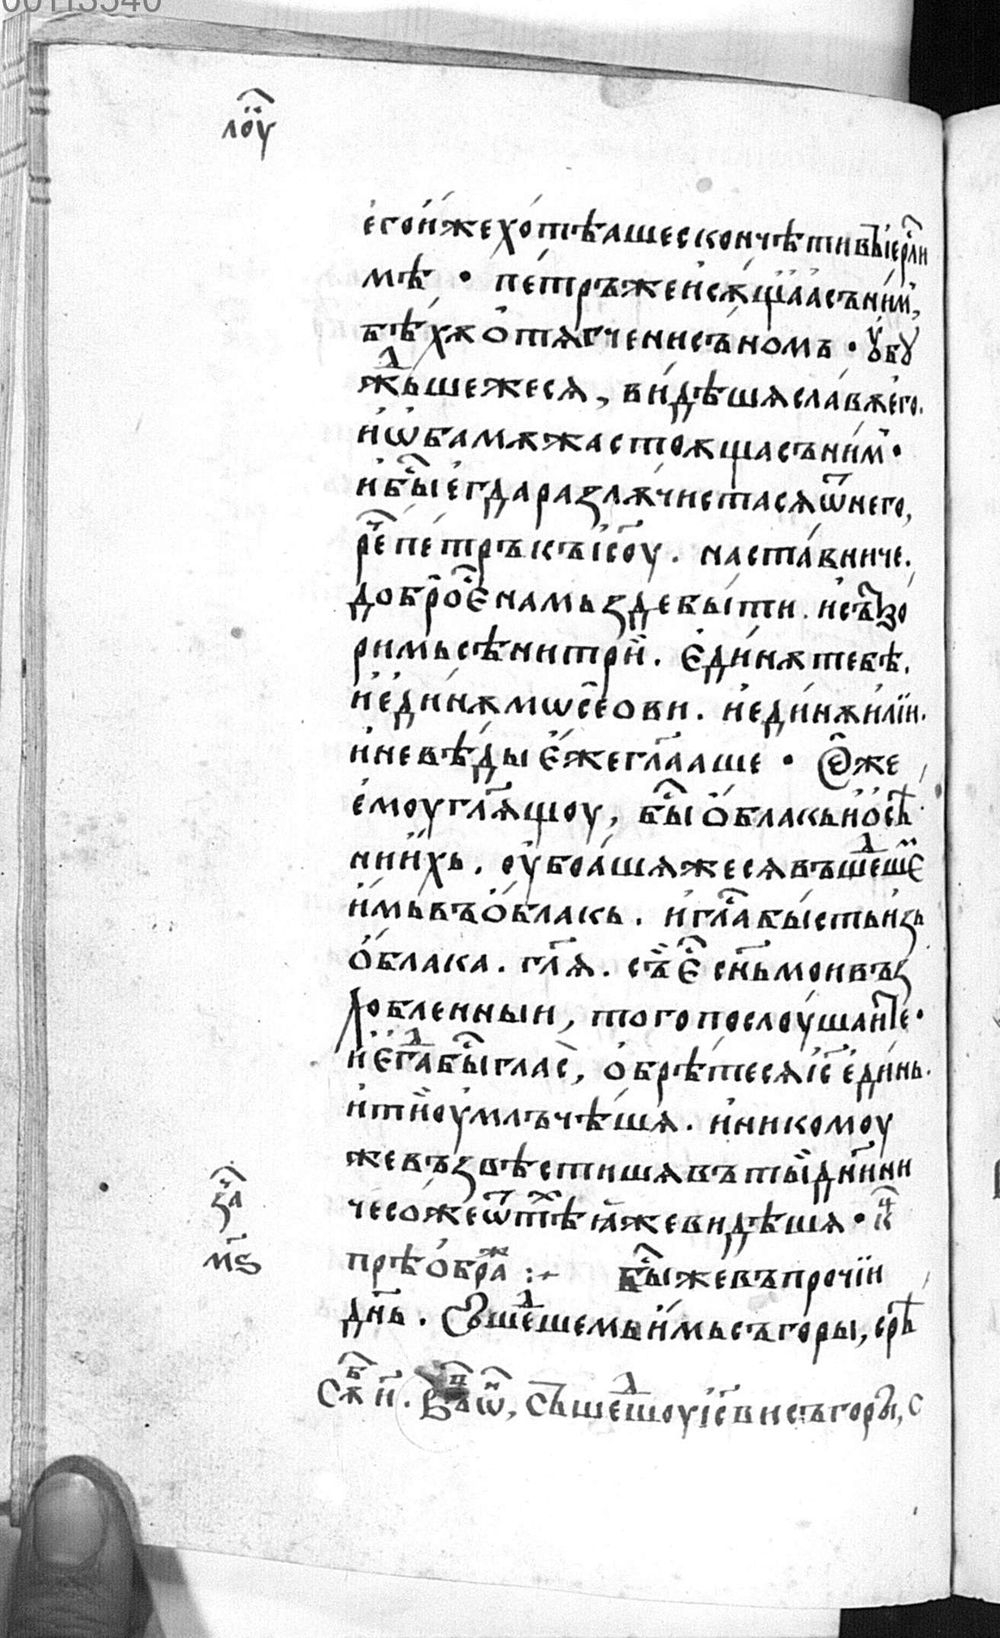 00113540
лоу҃
его и҆же хо́тѣаше сконча́ти въ і҆ер҃ли
мѣ • петръ же и҆ сѫщаа съ ним,
бѣ́хѫ ѻ҆тягчени съномъ • ꙋбꙋ
жⷣьшежеся, ви́дѣшя славѫ е҆го.
и҆ ѡ҆ба мѫжа стоѫща съ ним •
и҆ бы҇ е҆гда разлѫ́чистася ѿ него,
ре҇ петръ къ і҆с҃оу. наста́вниче.
добро҇ є҆ намь зде бы́ти. и҆ сътⷡо
римь сѣни три̏. є҆ди́нѫ тебѣ.
и҆ е҆ди́нѫ мѡѵ̈сеови. и҆ е҆ди́нѫ и҆лїи.
и҆ не вѣ́ды є҆же гл҃ааше • Сѐ же
е҆моу гл҃ѧщоу, бы҇ ѻ҆блакь и҆ ѻ҆сѣ
ни и҆хь. оу҆боа́шяжеся въшеⷣшє
и҆мь въ ѻ҆блакь. и҆ гла҇ бы́сть и҆зь
ѻ҆блака. гл҃ѧ. съ є҆҇ сн҃ь мои въз
любленныи, того послоу́шаите •
и҆ є҆гⷣа бы҇ глас, ѻ҆брѣ́теся і҆с҃ е҆ди́нь.
и҆ ти̏ оу҆млъчѣ́шя. и҆ никомоу
же възвѣстишя въ ты̏ дн҃и ни
чесоже ѿ тⷯѣ ꙗ҆же видѣшя • кⷰ҇
за҇
м҃ѕ
прѣѻбраⷤ :~ бы҇ же въ прочїи
дн҃ь. Сьшеⷣшемь и҆мь съ горы, срѣ
Сѫⷠ н҃. Въ ѡ҆н҇, съшеⷣшоу і҆с҃ви съ горы, с